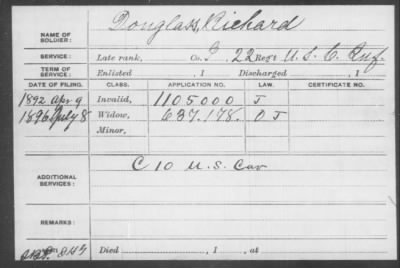 NAME OF SOLDIER: Douglass, Richard
SERVICE: Late rank, Co. G 22 Reg't U. S. C. Inf.
TERM OF SERVICE: Enlisted , 1 Discharged , 1
DATE OF FILING. CLASS. APPLICATION NO. LAW. CERTIFICATE NO.
1892 Apr 9 Invalid, 1105000 J
1896 July 8 Widow, 637.178. O J
Minor,
ADDITIONAL SERVICES: C 10 U.S. Cav
REMARKS:
Died , 1 , at